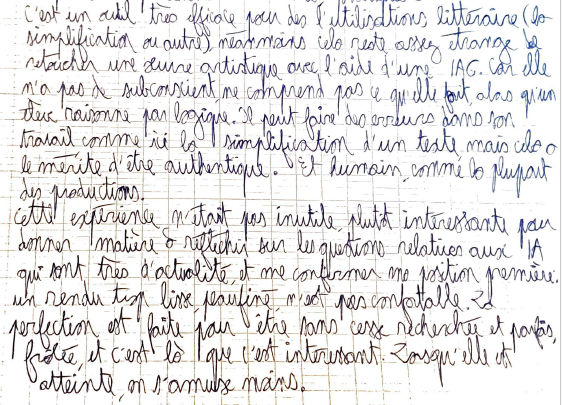 c'est un outil très efficace pour des l'utilisations littéraire (la
simplification ou autre) néanmoins cela reste assez étrange de
retoucher une œuvre artistique avec l'aide d'une IAG. Car elle
n'a pas de subconscient, ne comprend pas ce qu'elle fait, alors qu'un
élève raisonne par logique. Il peut faire des erreurs dans son
travail comme ici la simplification d'un texte, mais cela a
le mérite d'être authentique. Et humain, comme la plupart
des productions.
Cette expérience n'était pas inutile, plutôt intéressante pour
donner matière à réfléchir sur les questions relatives aux IA
qui sont très d'actualité, et me confirmer ma position première.
un rendu trop lisse, peaufiné, n'est pas confortable. La
perfection est faite pour être sans cesse recherchée et parfois,
frôlée, et c'est là que c'est intéressant. Lorsqu'elle est
atteinte, on s'amuse moins.